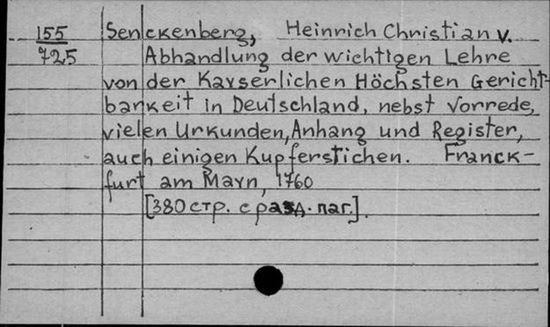 155 Senckenberg, Heinrich Christian v.
725 Abhandlung der wichtigen Lehre
von der Kayserlichen Höchsten Gericht-
barkeit in Deutschland, nebst Vorrede,
vielen Urkunden, Anhang und Register,
auch einigen Kupferstichen. Franck-
furt am Mayn, 1760
[380 стр. с разд. паг.].